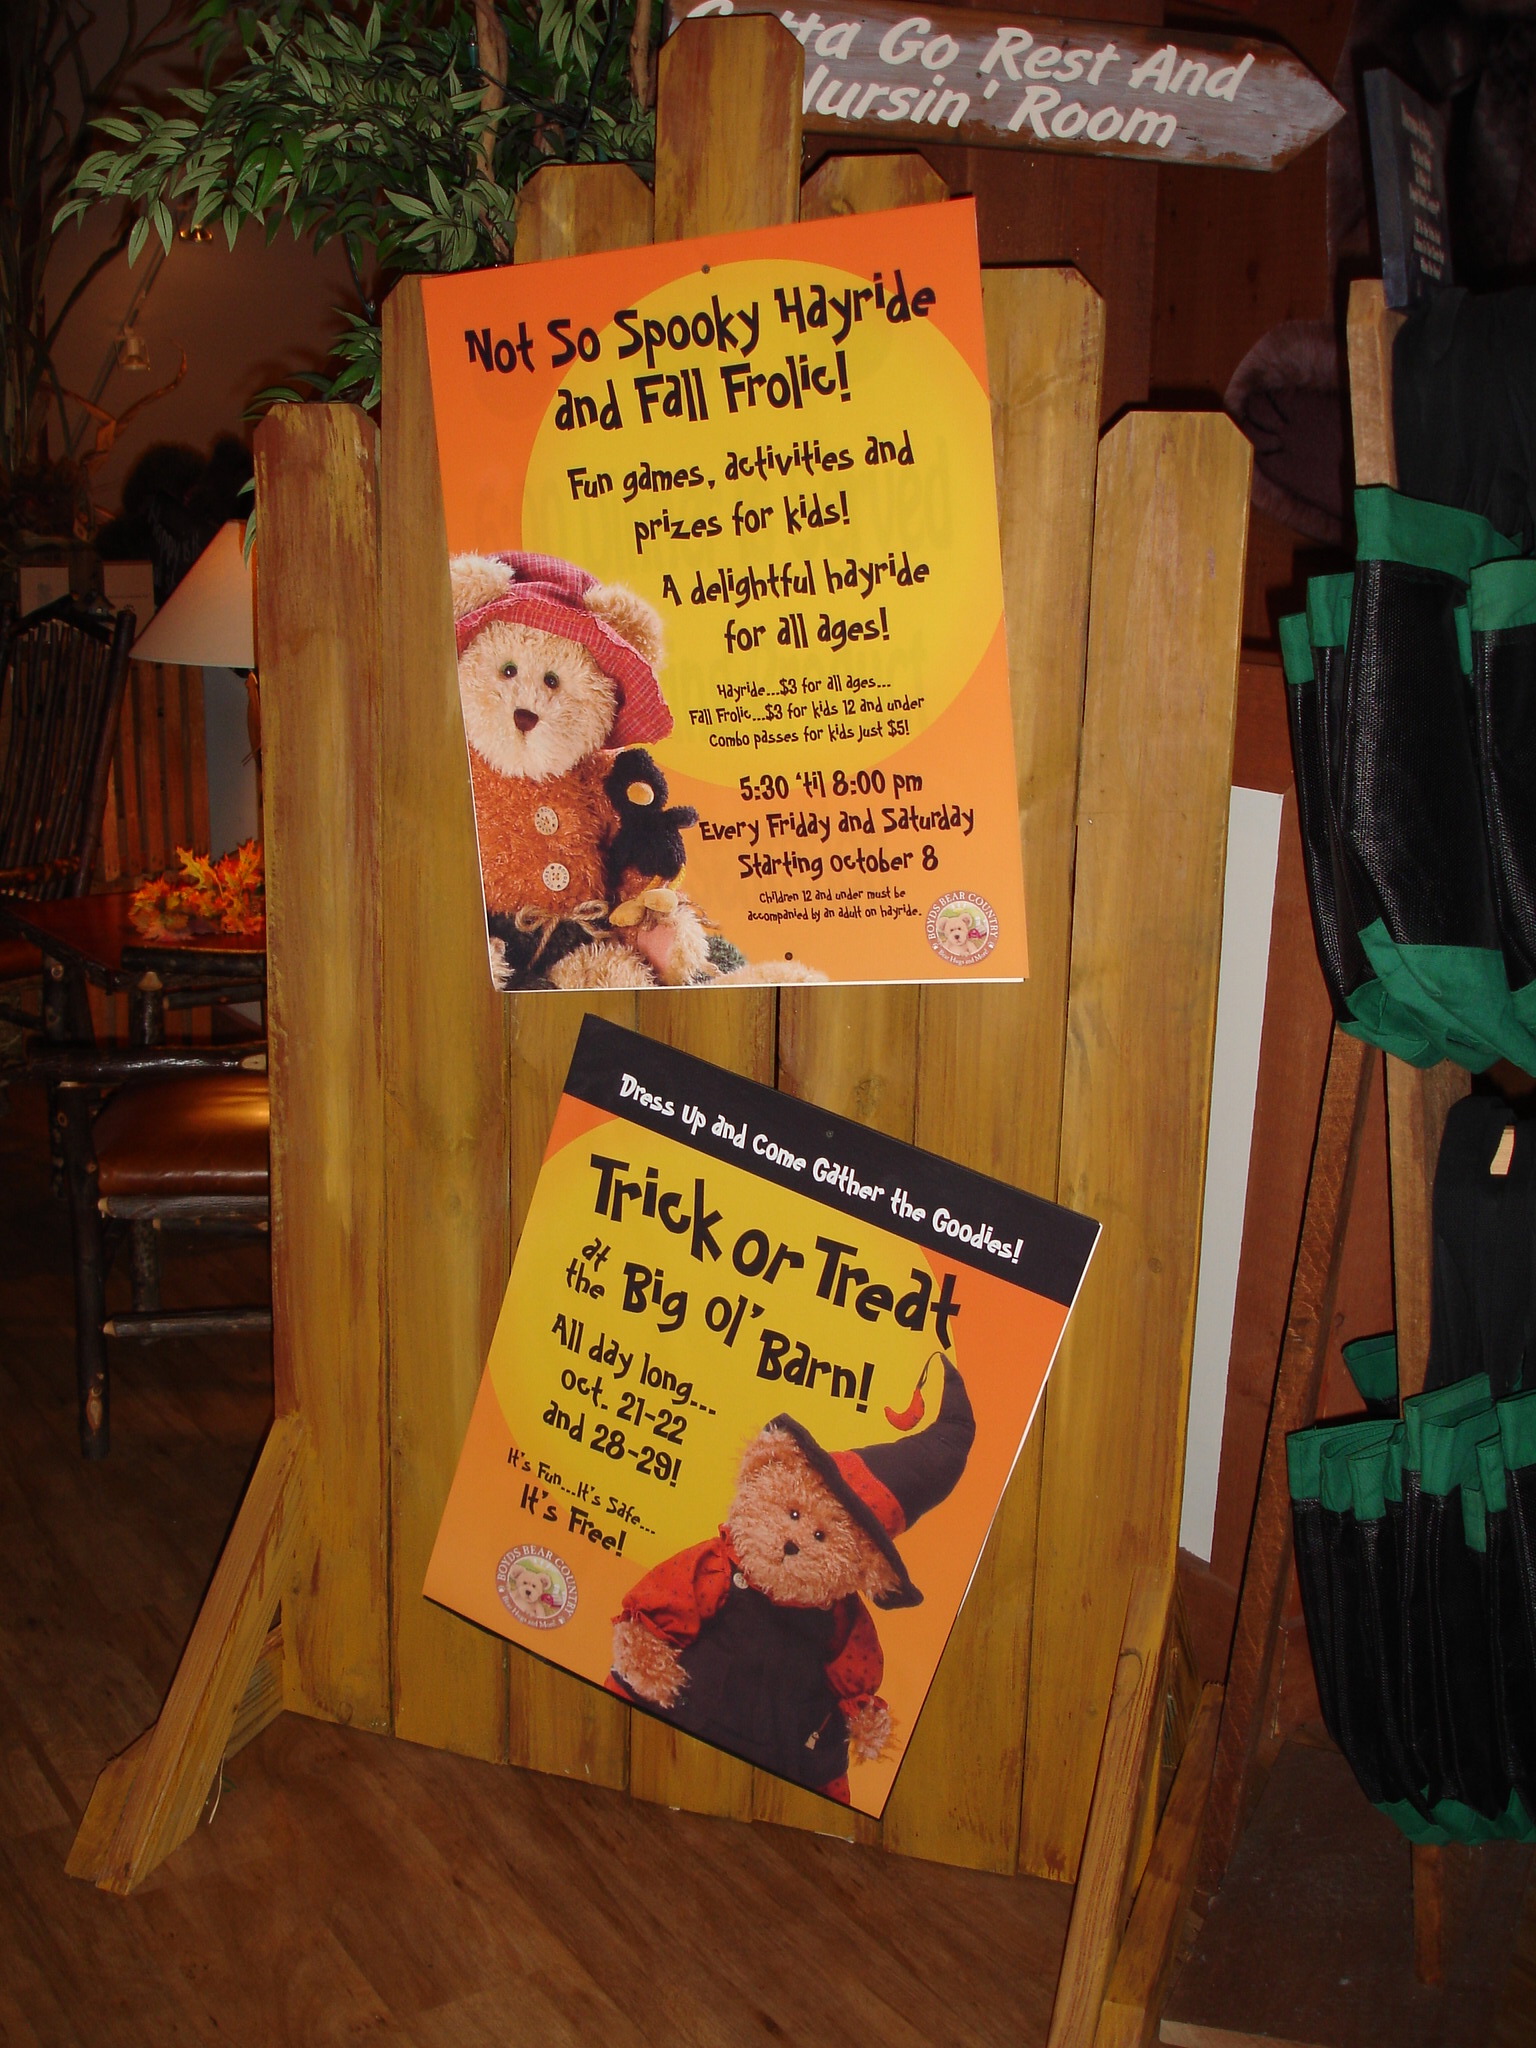 Go Rest And
Room
Not So Spooky Hayride
and Fall Frolic!
Fun games, activities and
prizes for kids!
A delightful hayride
for all ages!
Hayride...$3 for all ages...
Fall Frolic...$3 for kids 12 and under
Combo passes for kids just $5!
5:30 'til 8:00 pm
Every Friday and Saturday
Starting October 8
Children 12 and under must be
accompanied by an adult on hayride.
BOYDS BEAR COUNTRY
Bear Hugs and More!
Dress Up and Come Gather the Goodies!
Trick or Treat
at the Big Ol' Barn!
All day long...
Oct. 21-22
and 28-29!
It's Fun...It's Safe...
It's Free!
BOYDS BEAR COUNTRY
Bear Hugs and More!